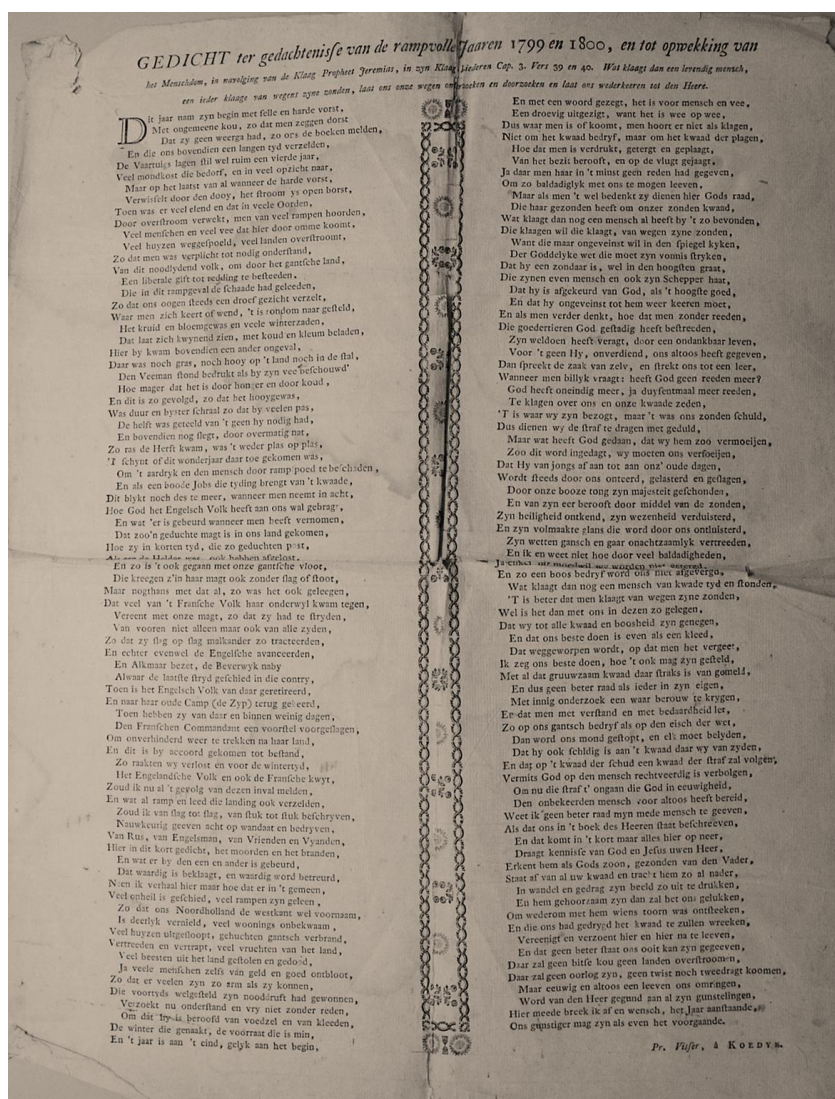 GEDICHT ter gedachtenisse van de rampvolle Jaaren 1799 en 1800, en tot opwekking van
het Menschdom, in navolging van de Klaag Propheet Jeremias, in zyn Klaag Liederen Cap. 3. Vers 39 en 40. Wat klaagt dan een levendig mensch,
een ieder klaage van wegens zyne zonden, laat ons onze wegen onderzoeken en doorzoeken en laat ons wederkeeren tot den Heere.
Dit jaar nam zyn begin met felle en harde vorst,
Met ongemeene kou, zo dat men zeggen dorst
Dat zy geen weerga had, zo ons de boeken melden,
En die ons bovendien een langen tyd verzelden,
De Vaartuigs lagen stil wel ruim een vierde jaar,
Veel mondkost die bedorf, en in veel opzicht naar,
Maar op het laatst van al wanneer de harde vorst,
Verwisselt door den dooy, het stroom ys open borst,
Toen was er veel elend en dat in veele Oorden,
Door overstroom verwekt, men van veel rampen hoorden,
Veel menschen en veel vee dat hier door omme koomt,
Veel huyzen weggespoeld, veel landen overstroomt,
Zo dat men was verplicht tot nodig onderstand,
Van dit noodlydend volk, om door het gantsche land,
Een liberale gift tot redding te besteeden,
Die in dit rampgeval de schaade had geleeden,
Zo dat ons oogen steeds een droef gezicht verzelt,
Waar men zich keert of wend, 't is rondom naar gesteld,
Het kruid en bloemgewas en veele winterzaden,
Dat laat zich kwynend zien, met koud en kleum beladen,
Hier by kwam bovendien een ander ongeval,
Daar was noch gras, noch hooy op 't land noch in de stal,
Den Veeman stond bedrukt als by zyn vee beschouwd
Hoe mager dat het is door honger en door koud,
En dit is zo gevolgd, zo dat het hooygewas,
Was duur en byster schraal zo dat by veelen pas,
De helft was geteeld van 't geen hy nodig had,
En bovendien nog slegt, door overmatig nat,
Zo ras de Herfst kwam, was 't weder plas op plas,
'T schynt of dit wonderjaar daar toe gekomen was,
Om 't aardryk en den mensch door ramp poed te beschaden,
En als een boode Jobs die tyding brengt van 't kwaade,
Dit blykt noch des te meer, wanneer men neemt in acht,
Hoe God het Engelsch Volk heeft aan ons wal gebragt,
En wat 'er is gebeurd wanneer men heeft vernomen,
Dat zoo'n geduchte magt is in ons land gekomen,
Hoe zy in korten tyd, die zo geduchten post,
Als aan de Helder was, ook hebben afgelost,
En zo is 't ook gegaan met onze gantsche vloot,
Die kreegen z'in haar magt ook zonder slag of stoot,
Maar nogthans met dat al, zo was het ook geleegen,
Dat veel van 't Fransche Volk haar onderwyl kwam tegen,
Vereent met onze magt, zo dat zy had te stryden,
Van vooren niet alleen maar ook van alle zyden,
Zo dat zy slag op slag malkander zo tracteerden,
En echter evenwel de Engelsche avanceerden,
En Alkmaar bezet, de Beverwyk naby
Alwaar de laatste stryd geschied in die contry,
Toen is het Engelsch Volk van daar geretireerd,
En naar haar oude Camp (de Zyp) terug gekeerd,
Toen hebben zy van daar en binnen weinig dagen,
Den Franschen Commandant een voorstel voorgeslagen,
Om onverhinderd weer te trekken na haar land,
En dit is by accoord gekomen tot bestand,
Zo raakten wy verlost en voor de wintertyd,
Het Engelandsche Volk en ook de Fransche kwyt,
Zoud ik nu al 't gevolg van dezen inval melden,
En wat al ramp en leed die landing ook verzelden,
Zoud ik van slag tot slag, van stuk tot stuk beschryven,
Nauwkeurig geeven acht op wandaat en bedryven,
Van Rus, van Engelsman, van Vrienden en Vyanden,
Hier in dit kort gedicht, het moorden en het branden,
En wat er by den een en ander is gebeurd,
Dat waardig is beklaagt, en waardig word betreurt,
Neen ik verhaal hier maar hoe dat er in 't gemeen,
Veel onheil is geschied, veel rampen zyn geleen,
Zo dat ons Noordholland de westkant wel voornaam,
Is deerlyk vernield, veel woonings onbekwaam,
Veel huyzen uitgesloopt, gehuchten gantsch verbrand,
Vertreeden en vertrapt, veel vruchten van het land,
Veel beesten uit het land gestolen en gedood,
Ja veele menschen zelfs van geld en goed ontbloot,
Zo dat er veelen zyn zo arm als zy konnen,
Die voortyds welgesteld zyn nooddruft had gewonnen,
Verzoekt nu onderstand en vry niet zonder reden,
Om dat hy is beroofd van voedzel en van kleeden,
De winter die genaakt, de voorraat die is min,
En 't jaar is aan 't eind, gelyk aan het begin,
En met een woord gezegt, het is voor mensch en vee,
Een droevig uitgezigt, want het is wee op wee,
Dus waar men is of koomt, men hoort er niet als klagen,
Niet om het kwaad bedryf, maar om het kwaad der plagen,
Hoe dat men is verdrukt, getergt en geplaagt,
Van het bezit berooft, en op de vlugt gejaagt,
Ja daar men haar in 't minst geen reden had gegeven,
Om zo baldadiglyk met ons te mogen leeven,
Maar als men 't wel bedenkt zy dienen hier Gods raad,
Die haar gezonden heeft om onzer zonden kwaad,
Wat klaagt dan nog een mensch al heeft hy 't zo bevonden,
Die klaagen wil die klaagt, van wegen zyne zonden,
Want die maar ongeveinst wil in den spiegel kyken,
Der Goddelyke wet die moet zyn vonnis stryken,
Dat hy een zondaar is, wel in den hoogsten graat,
Die zynen even mensch en ook zyn Schepper haat,
Dat hy is afgekeurd van God, als 't hoogste goed,
En dat hy ongeveinst tot hem weer keeren moet,
En als men verder denkt, hoe dat men zonder reeden,
Die goedertieren God gestadig heeft bestreeden,
Zyn weldoen heeft veragt, door een ondankbaar leven,
Voor 't geen Hy, onverdiend, ons altoos heeft gegeven,
Dan spreekt de zaak van zelv, en strekt ons tot een leer,
Wanneer men billyk vraagt: heeft God geen reeden meer?
God heeft oneindig meer, ja duysentmaal meer reeden,
Te klagen over ons en onze kwaade zeden,
'T is waar wy zyn bezogt, maar 't was ons zonden schuld,
Dus dienen wy de straf te dragen met geduld,
Maar wat heeft God gedaan, dat wy hem zoo vermoeijen,
Zoo dit word ingedagt, wy moeten ons verfoeijen,
Dat Hy van jongs af aan tot aan onz' oude dagen,
Wordt steeds door ons onteerd, gelasterd en geslagen,
Door onze booze tong zyn majesteit geschonden,
En van zyn eer berooft door middel van de zonden,
Zyn heiligheid ontkend, zyn wezenheid verduisterd,
En zyn volmaakte glans die word door ons ontluisterd,
Zyn wetten gansch en gaar onachtzaamlyk vertreeden,
En ik en weet niet hoe door veel baldadigheden,
En zo een boos bedryf word ons niet afgevergd,
Wat klaagt dan nog een mensch van kwade tyd en stonden,
'T is beter dat men klaagt van wegen zyne zonden,
Wel is het dan met ons in dezen zo gelegen,
Dat wy tot alle kwaad en boosheid zyn genegen,
En dat ons beste doen is even als een kleed,
Dat weggeworpen wordt, op dat men het vergeet,
Ik zeg ons beste doen, hoe 't ook mag zyn gesteld,
Met al dat gruuwzaam kwaad daar straks is van gemeld,
En dus geen beter raad als ieder in zyn eigen,
Met innig onderzoek een waar berouw te krygen,
En dat men met verstand en met bedaardheid let,
Zo op ons gantsch bedryf als op den eisch der wet,
Dan word ons mond gestopt, en elk moet belyden,
Dat hy ook schldig is aan 't kwaad daar wy van zyden,
En dat op 't kwaad der schud een kwaad der straf zal volgen,
Vermits God op den mensch rechtveerdig is verbolgen,
Om nu die straf t' ongaan die God in eeuwigheid,
Den onbekeerden mensch voor altoos heeft bereid,
Weet ik geen beter raad myn mede mensch te geeven,
Als dat ons in 't boek des Heeren staat beschreeven,
En dat komt in 't kort maar alles hier op neer,
Draagt kennisse van God en Jesus uwen Heer,
Erkent hem als Gods zoon, gezonden van den Vader,
Staat af van al uw kwaad en tracht hem zo al nader,
In wandel en gedrag zyn beeld zo uit te drukken,
En hem gehoorzaam zyn dan zal het ons gelukken,
Om wederom met hem wiens toorn was ontsteeken,
En die ons had gedrygd het kwaad te zullen wreeken,
Vereenigt en verzoent hier en hier na te leeven,
En dat geen beter staat ons ooit kan zyn gegeeven,
Daar zal geen bitse kou geen landen overstroomen,
Daar zal geen oorlog zyn, geen twist noch tweedragt koomen,
Maar eeuwig en altoos een leeven ons omringen,
Word van den Heer gegund aan al zyn gunstelingen,
Hier meede breek ik af en wensch, het Jaar aanstaande,
Ons gunstiger mag zyn als even het voorgaande.
Pr. Visser, à KOEDYK.